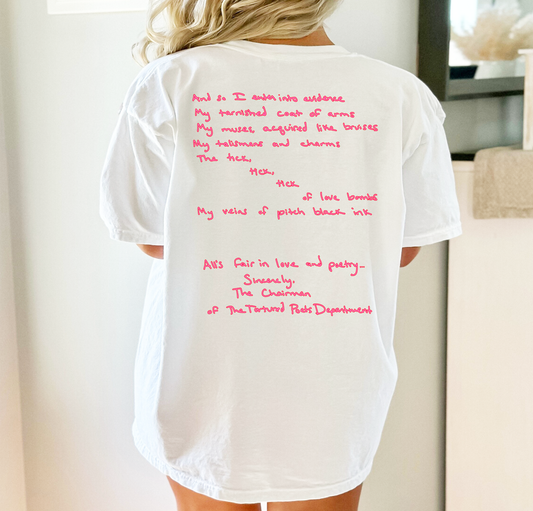 And so I enter into evidence
My tarnished coat of arms
My muses, acquired like bruises
My talismans and charms
The tick,
tick,
tick
of love bombs
My veins of pitch black ink
All's fair in love and poetry-
Sincerely,
The Chairman
of The Tortured Poets Department